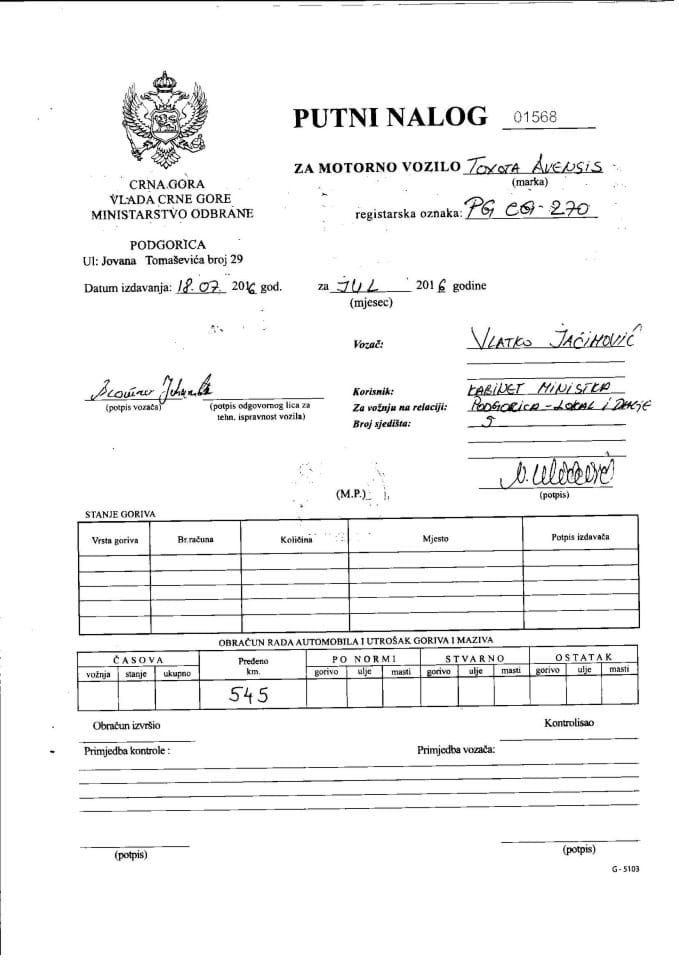 PUTNI NALOG 01568
ZA MOTORNO VOZILO TOYOTA AVENSIS
(marka)
registarska oznaka: PG CG-270
CRNA GORA
VLADA CRNE GORE
MINISTARSTVO ODBRANE
PODGORICA
Ul: Jovana Tomaševića broj 29
Datum izdavanja: 18.07. 2016 god.
za JUL 2016 godine
(mjesec)
Vozač: VLATKO JAĆIMOVIĆ
(potpis vozača)
(potpis odgovornog lica za
tehn. ispravnost vozila)
Korisnik: KABINET MINISTRA
Za vožnju na relaciji: PODGORICA - LOKAL I DALJE
Broj sjedišta: 5
(M.P.)
(potpis)
STANJE GORIVA
Vrsta goriva Br.računa Količina Mjesto Potpis izdavača
OBRAČUN RADA AUTOMOBILA I UTROŠAK GORIVA I MAZIVA
ČASOVA Pređeno km. PO NORMI STVARNO OSTATAK
vožnja stanje ukupno gorivo ulje masti gorivo ulje masti gorivo ulje masti
545
Obračun izvršio Kontrolisao
Primjedba kontrole : Primjedba vozača:
(potpis) (potpis)
G - 5103